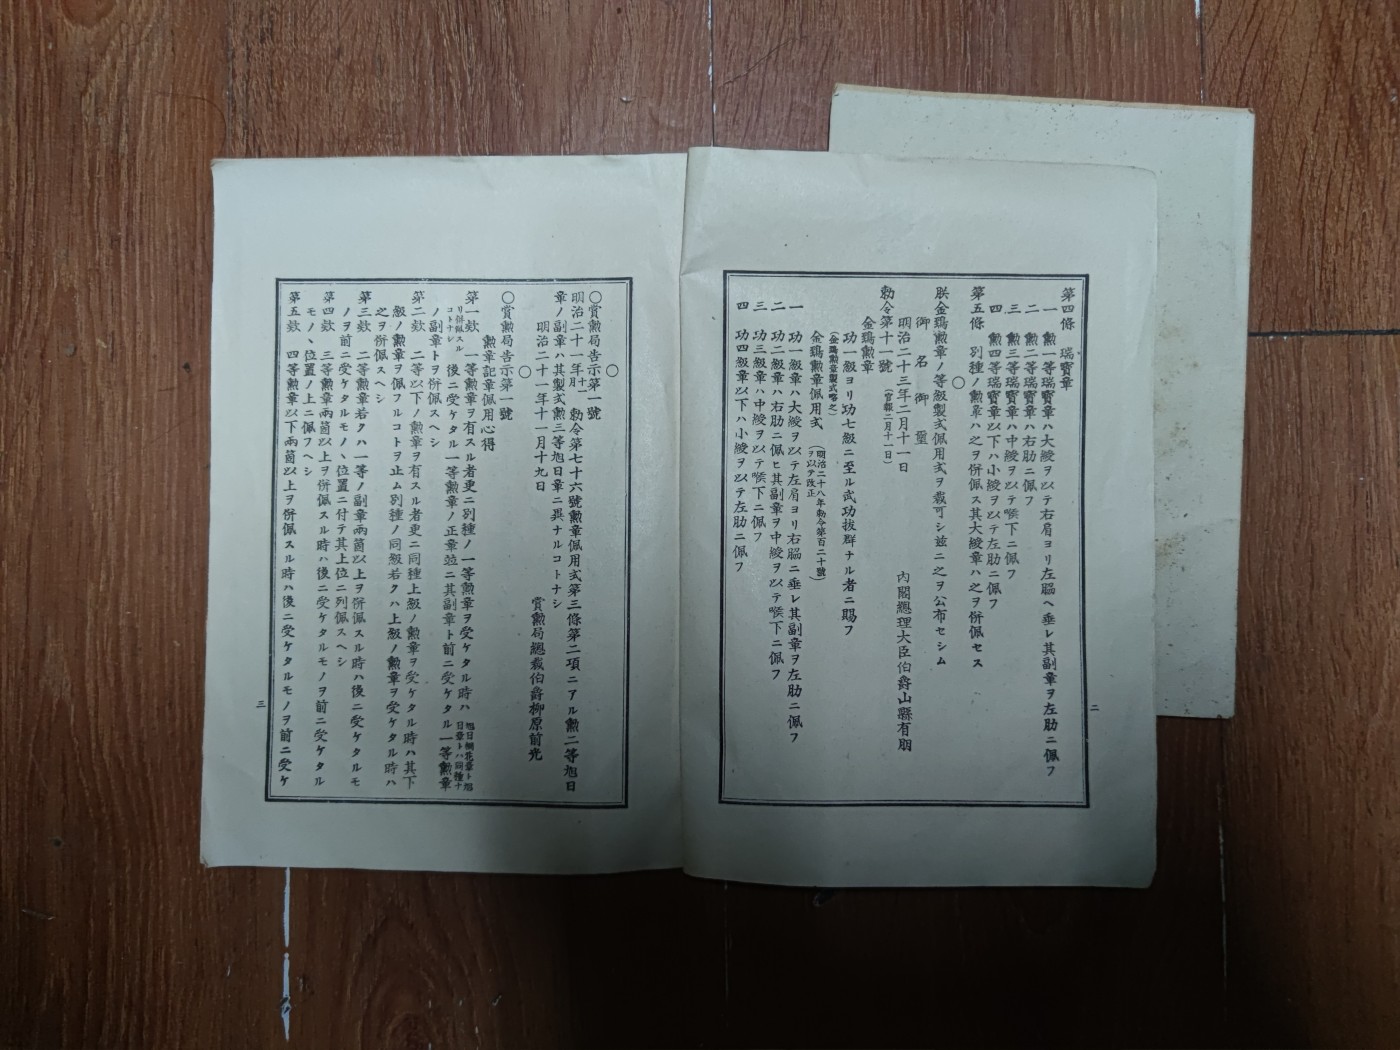 第四條　瑞寶章
一　勲一等瑞寶章ハ大綬ヲ以テ右肩ヨリ左脇ヘ垂レ其副章ヲ左肋ニ佩フ
二　勲二等瑞寶章ハ右肋ニ佩フ
三　勲三等瑞寶章ハ中綬ヲ以テ喉下ニ佩フ
四　勲四等瑞寶章以下ハ小綬ヲ以テ左肋ニ佩フ
第五條　別種ノ勲章ハ之ヲ併佩ス其大綬章ハ之ヲ併佩セス
○
朕金鵄勲章ノ等級製式佩用式ヲ裁可シ玆ニ之ヲ公布セシム
御名御璽
明治二十三年二月十一日
內閣總理大臣伯爵山縣有朋
勅令第十一號（官報二月十一日）
金鵄勲章
功一級ヨリ功七級ニ至ル武功拔群ナル者ニ賜フ
（金鵄勲章製式略之）
金鵄勲章佩用式（明治二十八年勅令第百二十號ヲ以テ改正）
一　功一級章ハ大綬ヲ以テ左肩ヨリ右脇ニ垂レ其副章ヲ左肋ニ佩フ
二　功二級章ハ右肋ニ佩ヒ其副章ヲ中綬ヲ以テ喉下ニ佩フ
三　功三級章ハ中綬ヲ以テ喉下ニ佩フ
四　功四級章以下ハ小綬ヲ以テ左肋ニ佩フ
二
○
○賞勲局告示第一號
明治二十一年十一月勅令第七十六號勲章佩用式第三條第二項ニアル勲二等旭日
章ノ副章ハ其製式勲三等旭日章ニ異ナルコトナシ
明治二十一年十一月十九日
賞勲局總裁伯爵柳原前光
○
○賞勲局告示第一號
勲章記章佩用心得
第一欵　一等勲章ヲ有スル者更ニ別種ノ一等勲章ヲ受ケタル時ハ旭日桐花章ト旭日章トハ同種ナ
リ併佩スルコトナシ後ニ受ケタル一等勲章ノ正章竝ニ其副章ト前ニ受ケタル一等勲章
ノ副章トヲ併佩スヘシ
第二欵　二等以下ノ勲章ヲ有スル者更ニ同種上級ノ勲章ヲ受ケタル時ハ其下
級ノ勲章ヲ佩フルコトヲ止ム別種ノ同級若クハ上級ノ勲章ヲ受ケタル時ハ
之ヲ併佩スヘシ
第三欵　二等勲章若クハ一等ノ副章兩箇以上ヲ併佩スル時ハ後ニ受ケタルモ
ノヲ前ニ受ケタルモノヽ位置ニ付テ其上位ニ列佩スヘシ
第四欵　三等勲章兩箇以上ヲ併佩スル時ハ後ニ受ケタルモノヲ前ニ受ケタル
モノヽ位置ノ上ニ佩フヘシ
第五欵　四等勲章以下兩箇以上ヲ併佩スル時ハ後ニ受ケタルモノヲ前ニ受ケ
三